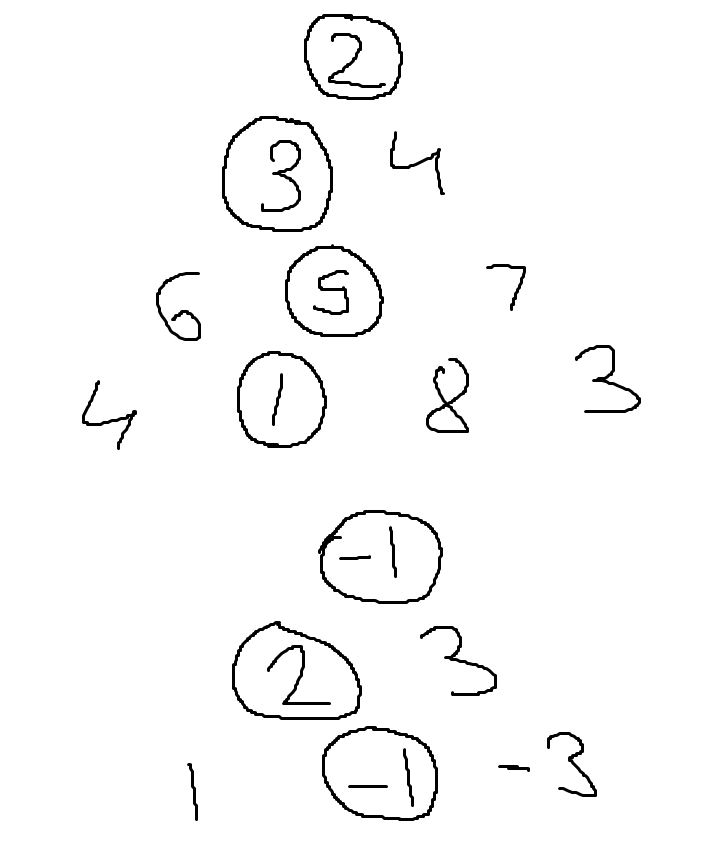 2
3 4
6 5 7
4 1 8 3
-1
2 3
1 -1 -3